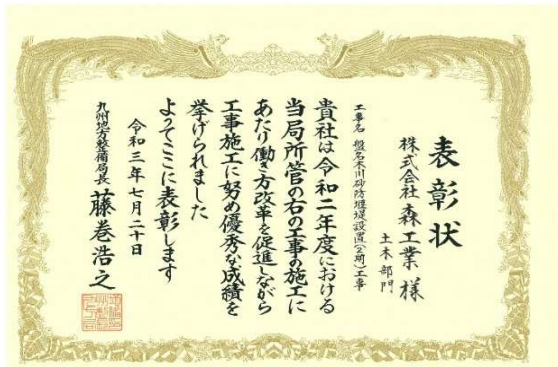 表彰状
株式会社森工業 様
土木部門
工事名 盤名木川砂防堰堤設置(2期)工事
貴社は令和二年度における
当局所管の右の工事の施工に
あたり働き方改革を促進しながら
工事施工に努め優秀な成績を
挙げられました
よってここに表彰します
令和三年七月二十日
九州地方整備局長 藤巻浩之